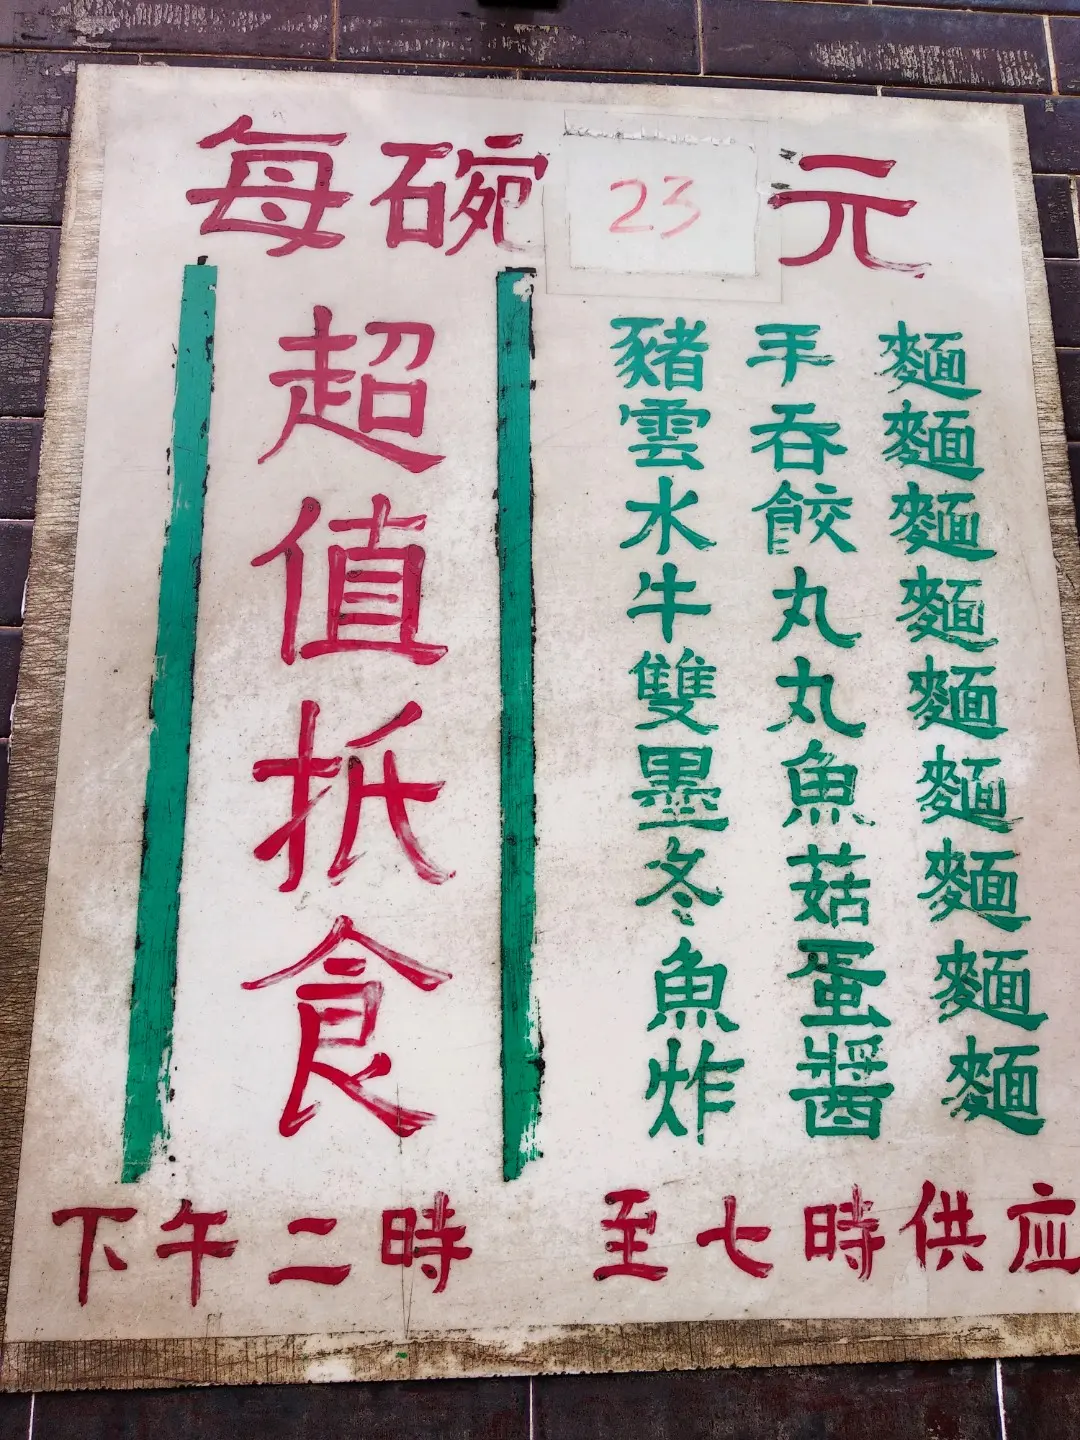 每碗23元
超值抵食
豬手麵
雲吞麵
水餃麵
牛丸麵
雙丸麵
墨魚麵
冬菇麵
魚蛋麵
炸醬麵
下午二時 至七時供应